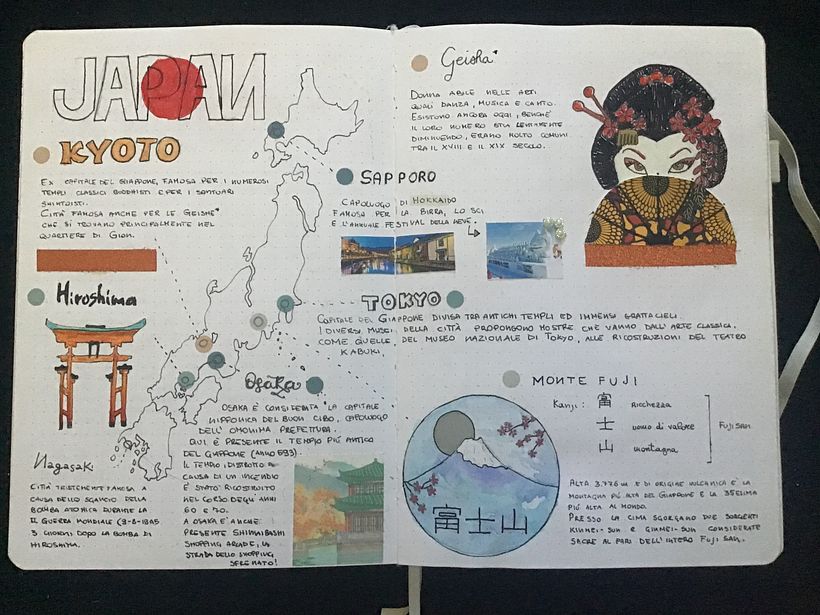 JAPAN
KYOTO
EX CAPITALE DEL GIAPPONE, FAMOSA PER I NUMEROSI
TEMPLI CLASSICI BUDDHISTI E PER I SANTUARI
SHINTOISTI.
CITTÀ FAMOSA ANCHE PER LE GEISHE*
CHE SI TROVANO PRINCIPALMENTE NEL
QUARTIERE DI GION.
Hiroshima
Nagasaki
CITTÀ TRISTEMENTE FAMOSA A
CAUSA DELLO SGANCIO DELLA
BOMBA ATOMICA DURANTE LA
II GUERRA MONDIALE
3 GIORNI DOPO LA BOMBA DI
HIROSHIMA.
SAPPORO
CAPOLUOGO DI HOKKAIDO
FAMOSA PER LA BIRRA, LO SCI
E L'ANNUALE FESTIVAL DELLA NEVE.
TOKYO
CAPITALE DEL GIAPPONE DIVISA TRA ANTICHI TEMPLI ED IMMENSI GRATTACIELI.
I DIVERSI MUSEI DELLA CITTÀ PROPONGONO MOSTRE CHE VANNO DALL'ARTE CLASSICA,
COME QUELLE DEL MUSEO NAZIONALE DI TOKYO, ALLE RICOSTRUZIONI DEL TEATRO
KABUKI.
OSAKA
OSAKA È CONSIDERATA "LA CAPITALE
NIPPONICA DEL BUON CIBO, CAPOLUOGO
DELL'OMONIMA PREFETTURA.
QUI È PRESENTE IL TEMPIO PIÙ ANTICO
DEL GIAPPONE (ANNO 593).
IL TEMPIO, DISTRUTTO A
CAUSA DI UN INCENDIO
È STATO RICOSTRUITO
NEL CORSO DEGLI ANNI
60 E 70.
A OSAKA È ANCHE
PRESENTE SHINSAIBASHI
SHOPPING ARCADE, LA
STRADA DELLO SHOPPING
SFRENATO!
Geisha*
DONNA ABILE NELLE ARTI
QUALI DANZA, MUSICA E CANTO.
ESISTONO ANCORA OGGI, BENCHÉ
IL LORO NUMERO STIA LENTAMENTE
DIMINUENDO, ERANO MOLTO COMUNI
TRA IL XVIII E IL XIX SECOLO.
MONTE FUJI
Kanji: 富 Ricchezza
士 uomo di valore
山 montagna
FUJISAN
富士山
ALTA 3.776 M. E DI ORIGINE VULCANICA È LA
MONTAGNA PIÙ ALTA DEL GIAPPONE E LA 35ESIMA
PIÙ ALTA AL MONDO.
PRESSO LA CIMA SGORGANO DUE SORGENTI
KINMEI-SUN E GINMEI-SUN CONSIDERATE
SACRE AL PARI DELL'INTERO FUJISAN.